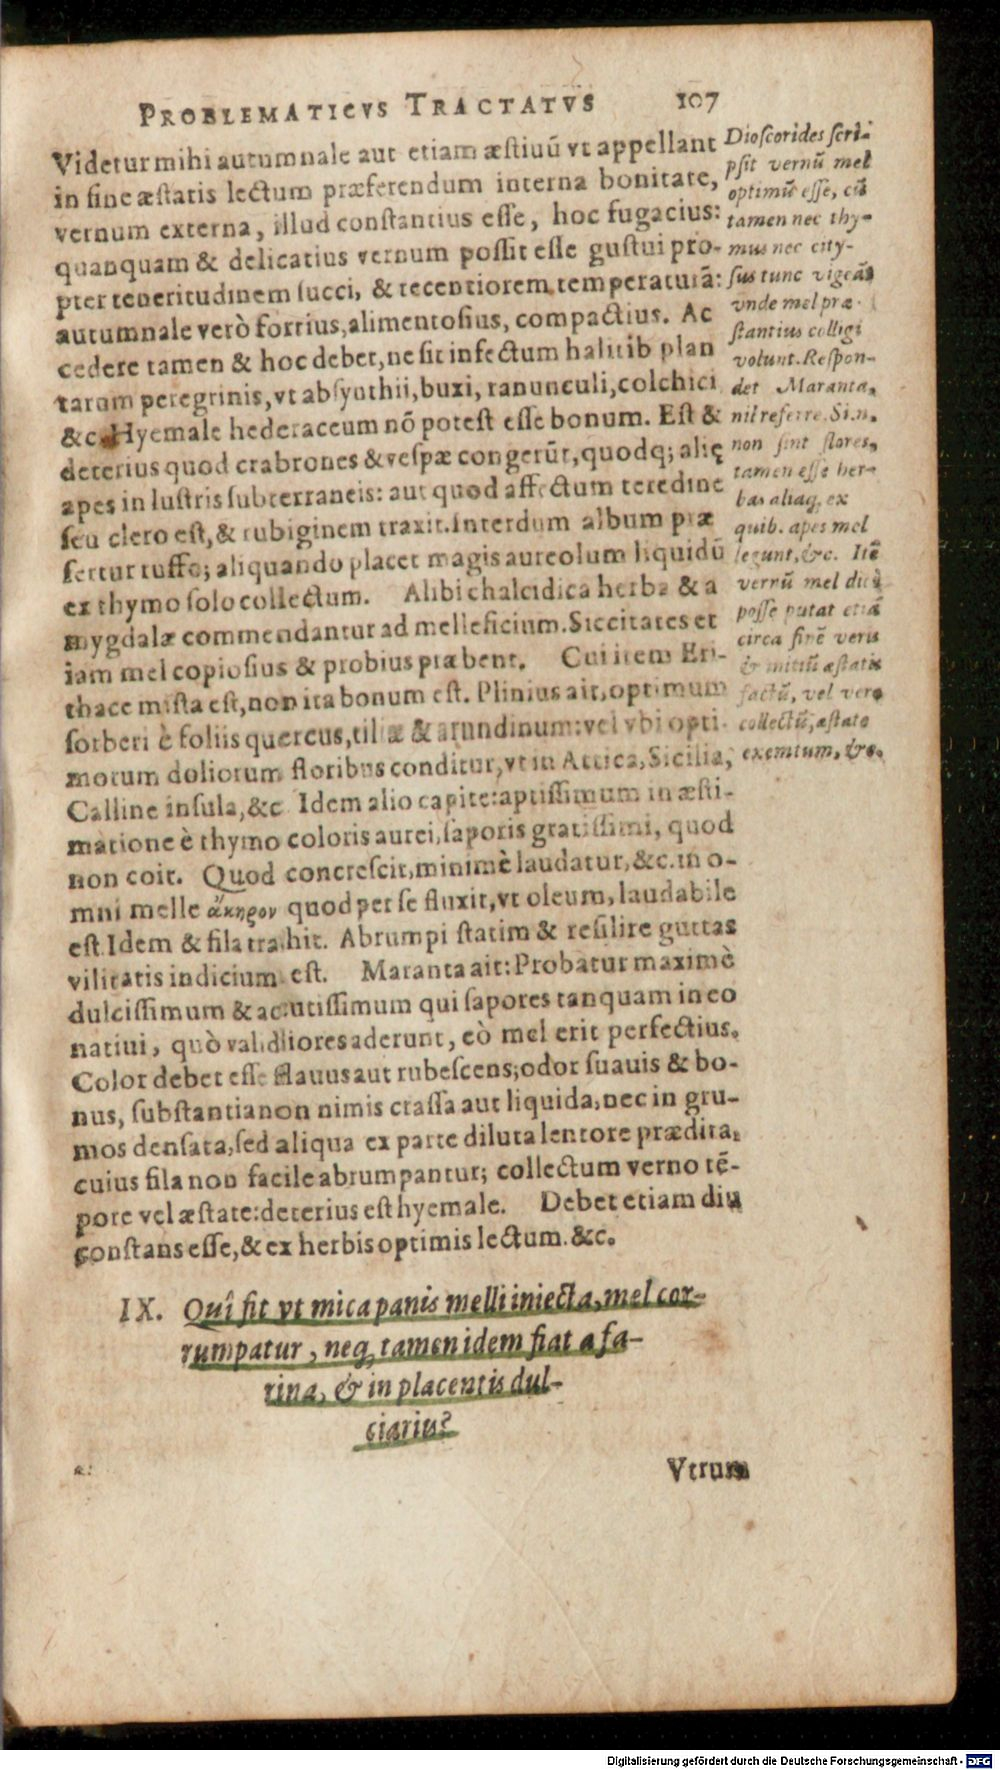 PROBLEMATICVS TRACTATVS 107
Videtur mihi autumnale aut etiam æstiuũ vt appellant
in fine æstatis lectum præferendum interna bonitate,
vernum externa, illud constantius esse, hoc fugacius:
quanquam & delicatius vernum possit esse gustui pro-
pter teneritudinem succi, & recentiorem temperaturã:
autumnale verò fortius, alimentosius, compactius. Ac
cedere tamen & hoc debet, ne sit infectum halitib plan
tarum peregrinis, vt absynthii, buxi, ranunculi, colchici
&c. Hyemale hederaceum nõ potest esse bonum. Est &
deterius quod crabrones & vespæ congerũt, quodq; alię
apes in lustris subterraneis: aut quod affectum teredine
seu clero est, & rubiginem traxit. Interdum album præ
fertur ruffo; aliquando placet magis aureolum liquidũ
ex thymo solo collectum. Alibi chalcidica herba & a
mygdalæ commendantur ad mellificium. Siccitates et
iam mel copiosius & probius præbent. Cui item Eri-
thace mista est, non ita bonum est. Plinius ait, optimum
sorberi è foliis quercus, tiliæ & arundinum: vel vbi opti
morum doliorum floribus conditur, vt in Attica, Sicilia,
Calline insula, &c. Idem alio capite: aptissimum in æsti-
matione è thymo coloris aurei, saporis gratissimi, quod
non coit. Quod concrescit, minimè laudatur, &c. in o-
mni melle ἄκηρον quod per se fluxit, vt oleum, laudabile
est. Idem & fila trahit. Abrumpi statim & resilire guttas
vilitatis indicium est. Maranta ait: Probatur maximè
dulcissimum & acutissimum qui sapores tanquam in eo
natiui, quò validiores aderunt, eò mel erit perfectius.
Color debet esse flauus aut rubescens; odor suauis & bo-
nus, substantia non nimis crassa aut liquida, nec in gru-
mos densata, sed aliqua ex parte diluta lentore prædita,
cuius fila non facile abrumpantur; collectum verno tẽ-
pore vel æstate: deterius est hyemale. Debet etiam diu
constans esse, & ex herbis optimis lectum. &c.
Dioscorides scri-
psit vernũ mel
optimũ esse, cũ
tamen nec thy-
mus nec city-
sus tunc vigeãt
vnde mel præ-
stantius colligi
volunt. Respon-
det Maranta,
nil referre. Si n.
non sint flores,
tamen esse her-
bas aliaq; ex
quib. apes mel
legunt, &c. Itẽ
vernũ mel dici
posse putat etiã
circa finẽ veris
& initiũ æstatis
factũ, vel vere
collectũ, æstate
exemtum, &c.
IX. Quî fit vt mica panis melli iniecta, mel cor-
rumpatur, neq, tamen idem fiat a fa-
rina, & in placentis dul-
ciariis?
Vtrum
Digitalisierung gefördert durch die Deutsche Forschungsgemeinschaft - DFG